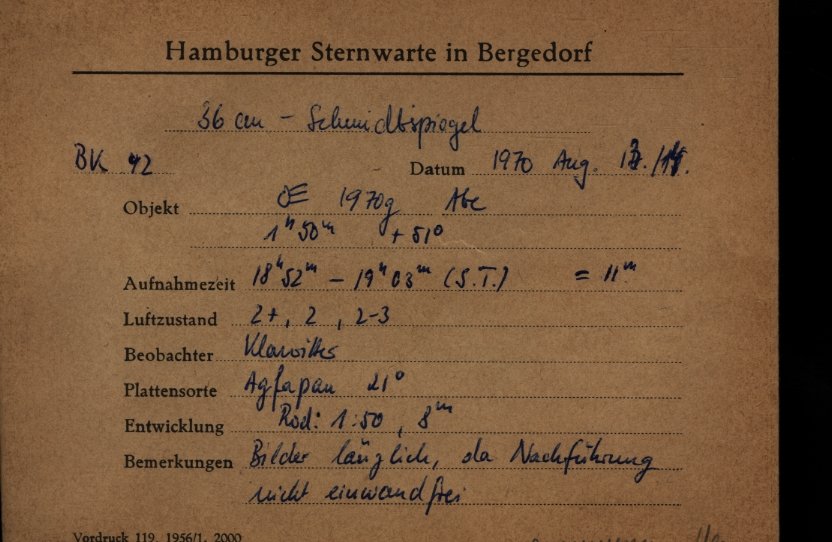 Hamburger Sternwarte in Bergedorf
36 cm - Schmidtspiegel
BK 42 Datum 1970 Aug. 13./14.
Objekt 1970g Abe
1ʰ 50ᵐ + 51°
Aufnahmezeit 18ʰ52ᵐ - 19ʰ03ᵐ (S.T.) = 11ᵐ
Luftzustand 2+, 2, 2-3
Beobachter
Plattensorte Agfapan 21°
Entwicklung Rod: 1:50, 8ᵐ
Bemerkungen Bilder länglich, da Nachführung
nicht einwandfrei
Vordruck 119. 1956/1. 2000